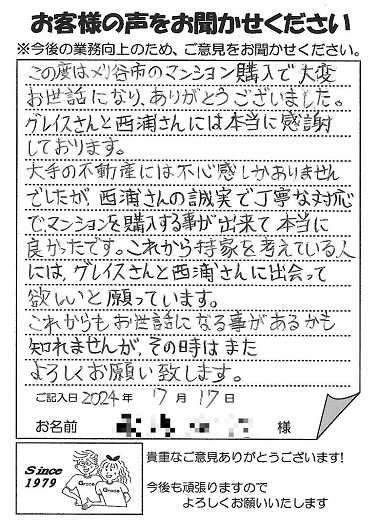 お客様の声をお聞かせください
※今後の業務向上のため、ご意見をお聞かせください。
この度は刈谷市のマンション購入で大変
お世話になり、ありがとうございました。
グレイスさんと西浦さんには本当に感謝
しております。
大手の不動産には不心感しかありません
でしたが、西浦さんの誠実で丁寧な対応
で、マンションを購入する事が出来て本当に
良かったです。これから持家を考えている人
には、グレイスさんと西浦さんに出会って
欲しいと願っています。
これからもお世話になる事があるかも
知れませんが、その時はまた
よろしくお願い致します。
ご記入日 2024年 7月 17日
お名前 様
Since
1979
Grace
Grace
貴重なご意見ありがとうございます!
今後も頑張りますので
よろしくお願いいたします